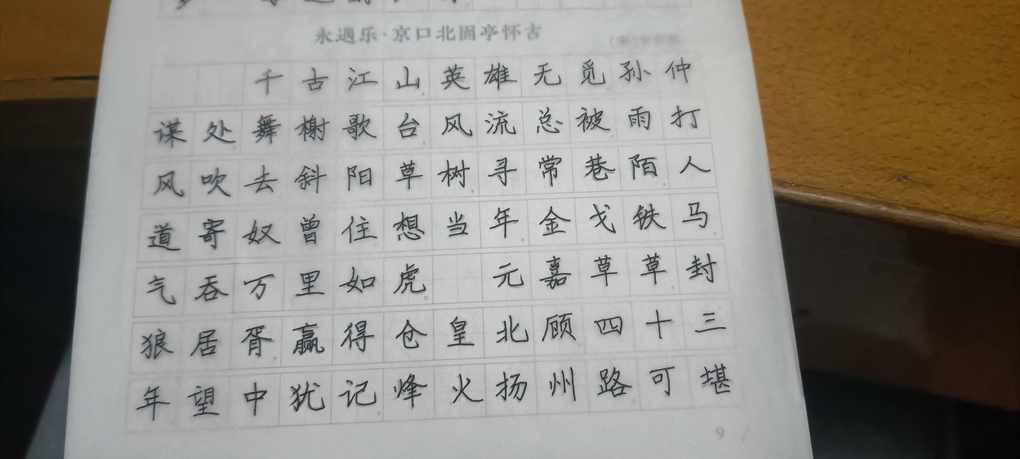 永遇乐·京口北固亭怀古
千古江山英雄无觅孙仲
谋处舞榭歌台风流总被雨打
风吹去斜阳草树寻常巷陌人
道寄奴曾住想当年金戈铁马
气吞万里如虎 元嘉草草封
狼居胥赢得仓皇北顾四十三
年望中犹记烽火扬州路可堪
9